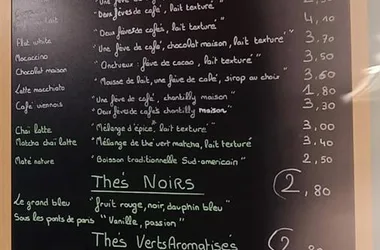 "Deux fèves de café, lait texturé" 4,10
"Deux fèves de cafés, lait texturé"
Flat white "Une fève de café, chocolat maison, lait texturé" 3,70
Moccaccino "Onctueux : fève de cacao, lait texturé" 3,50
Chocolat maison "Mousse de lait, une fève de café, sirop au choix" 3,60
Latte macchiato "Une fève de café, chantilly maison" 1,80
Café viennois "Deux fèves de cafés chantilly maison" 3,30
Chaï latte "Mélange d'épice, lait texturé" 3,00
Matcha chaï latte "Mélange de thé vert matcha, lait texturé" 3,40
Maté nature "Boisson traditionnelle Sud-americain" 2,50
Thés Noirs 2,80
Le grand bleu "fruit rouge, noir, dauphin bleu"
Sous les ponts de paris "Vanille, passion"
Thés Verts Aromatisés 2,80